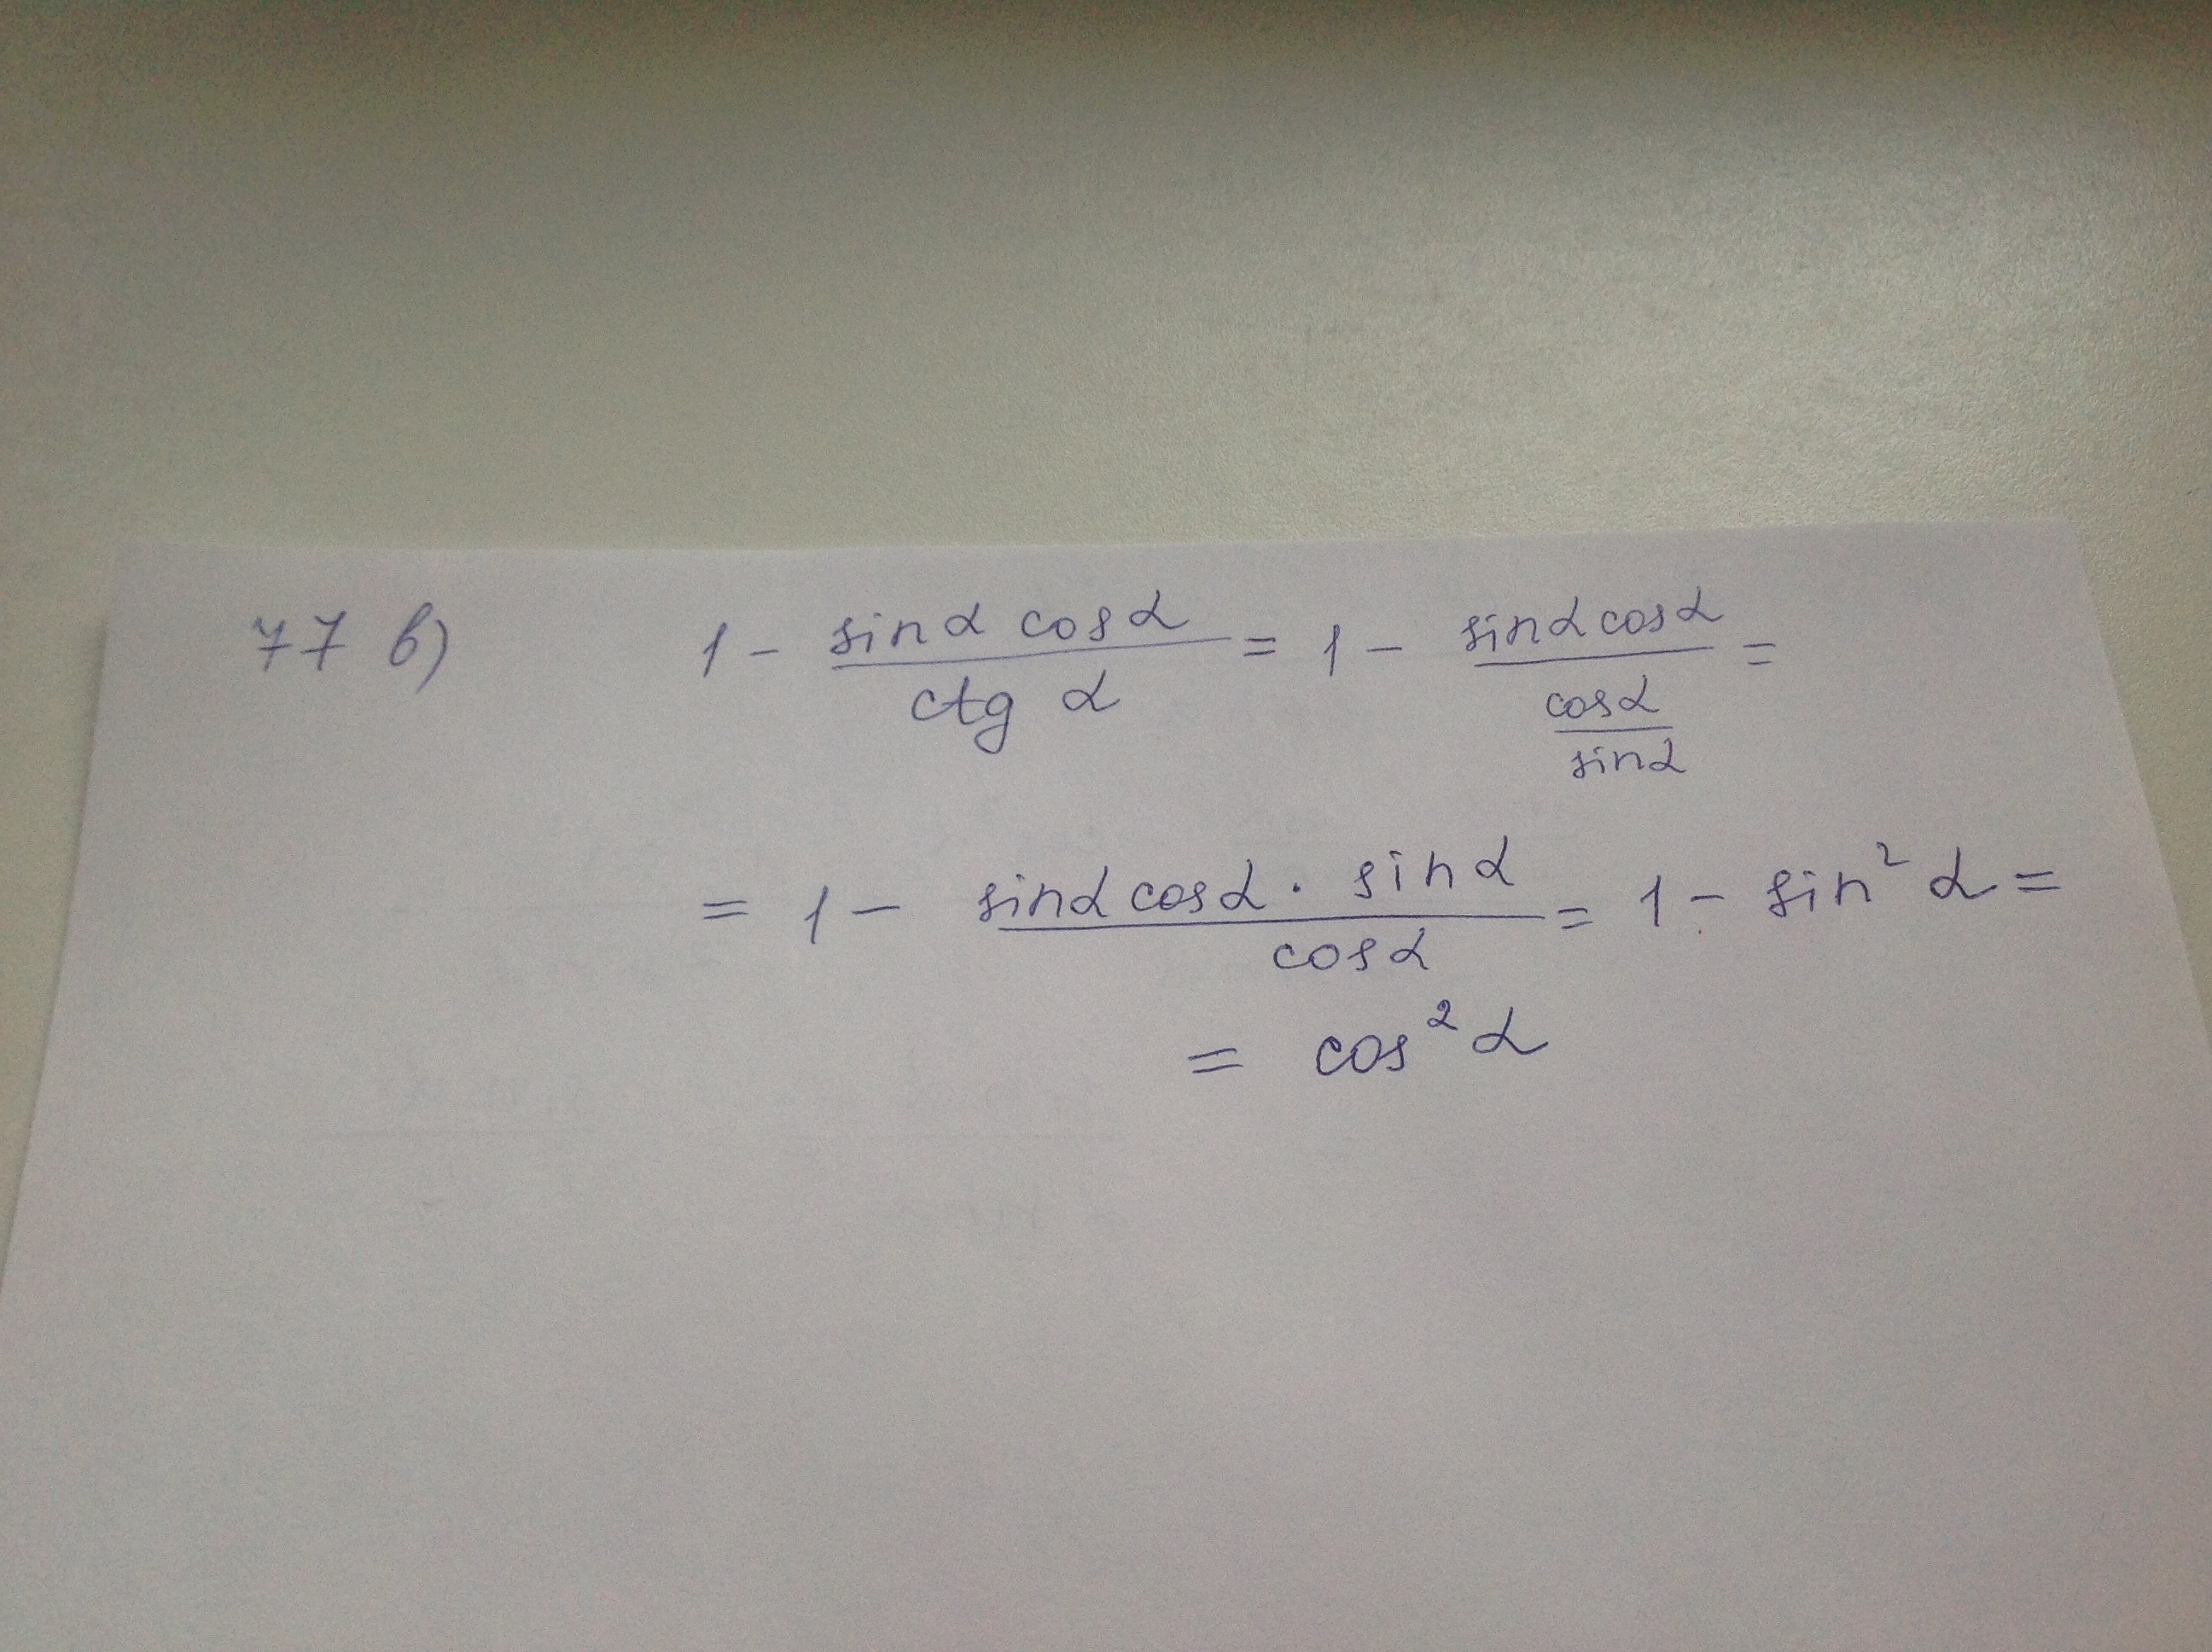 77 в) 1 - \frac{sin α cos α}{ctg α} = 1 - \frac{sin α cos α}{\frac{cos α}{sin α}} =
= 1 - \frac{sin α cos α · sin α}{cos α} = 1 - sin² α =
= cos² α